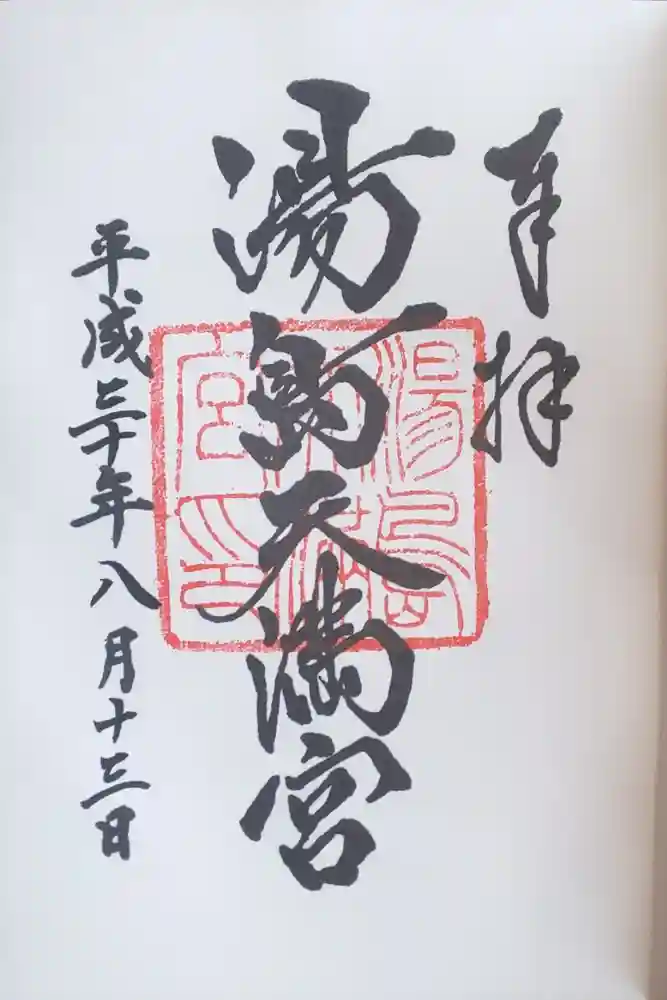 奉拝
湯島天満宮
平成三十年八月十三日
湯島
天満
宮印